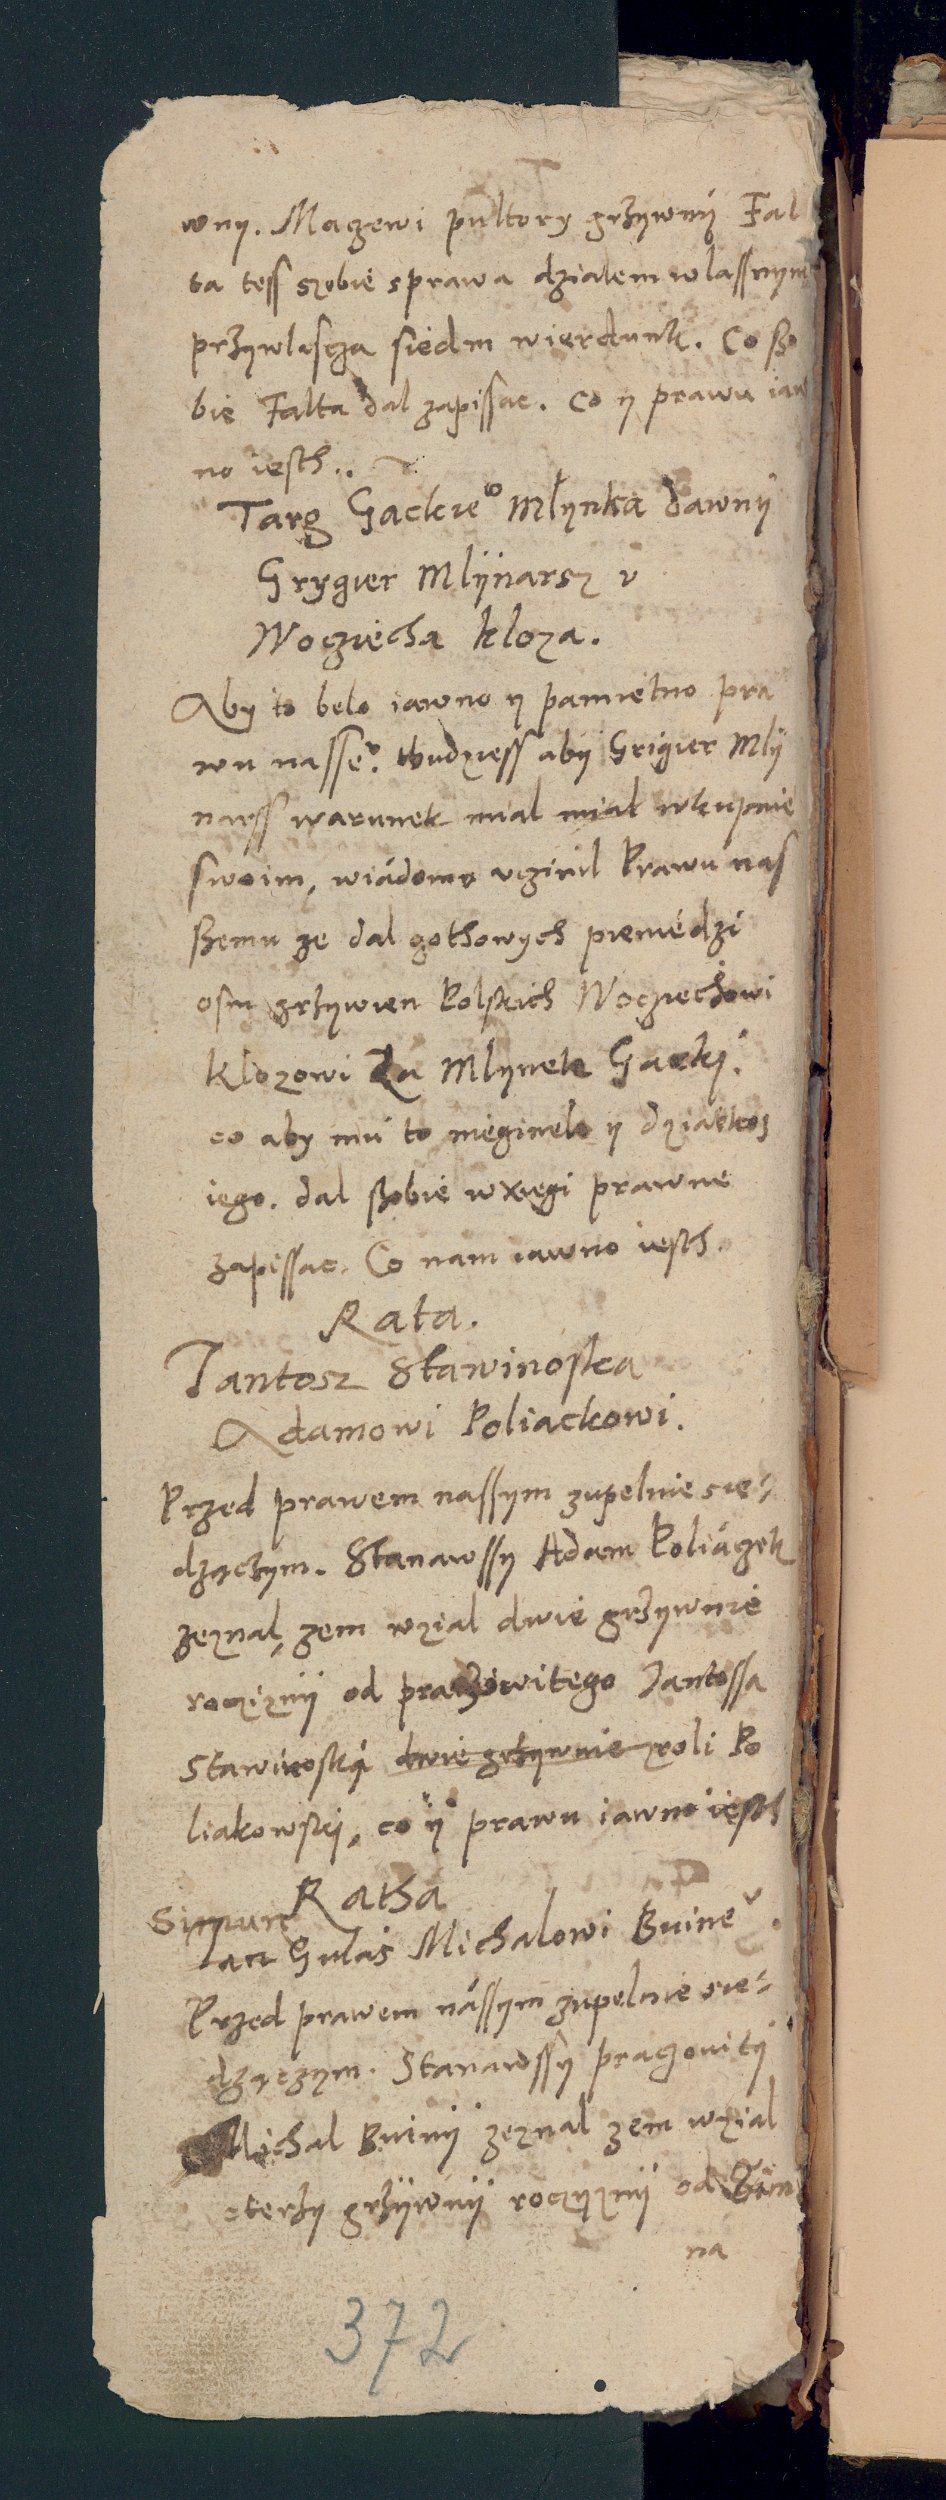 wny. Maczewi pultory grzywny Fal
ta tess szobie sprawa dzialem wlassnym
przywlascza siedm wierdunk. Co sso
bie Falta dal zapissac. Co y prawu iaw
no iesth..
Targ Gackie° Młynka dawny
Grygier Mlÿnarsz v
Wocziecha kloza.
Aby to belo iawno y pamietno pra
wu nasse° thudziess abÿ Grigier Mlÿ
narss warunek mial mial wkupnie
swoim, wiádomo vczinil Prawu nas
ssemu ze dal gothowych pieniédzi
osm grzywien Polskich Wocziechowi
Klozowi Za Mlynek Gacki.
co aby mú to nieginelo y dziatkos
iego. dal ssobie wxiegi prawne
zapissac. Co nam iawno iesth.
Rata.
Jantosz Stawinoska
Adamowi Poliackowi.
Przed prawem nassym zupelnie sie-
dzączym. Stanawssy Adam Poliączek
zeznal, zem wzial dwie grzywnie
roczizny od praczowitego Jantossa
Stawinoskí dwie grzywnie zroli Po
liakowski, co ÿ prawu iawno iesth
Ratha
Simun
Gulas Michalowi Buine°.
Przed prawem nássym zupelnie sie-
dzączym. Stanawssy praczovitÿ
Michal Buinÿ zeznal zem wzial
cterzy grzÿwnÿ roczÿznÿ od Sim
na
372